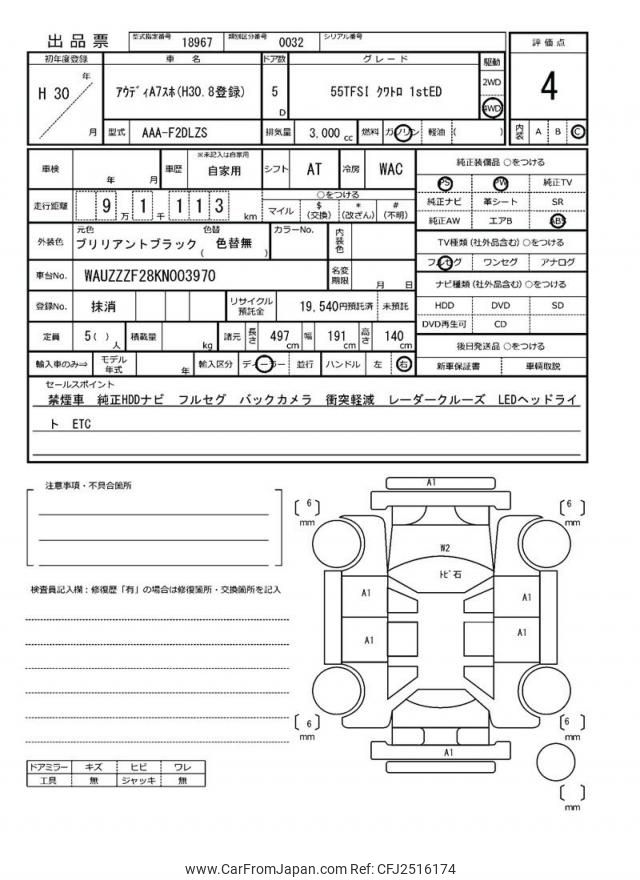 出品票 型式指定番号 18967 類別区分番号 0032 シリアル番号
初年度登録 車 名 ドア数 グレード 駆動 評価点
H 30 年 月 アウディA7スホ(H30.8登録) 5 D 55TFSI クワトロ 1stED 2WD 4WD 4
型式 AAA-F2DLZS 排気量 3,000 cc 燃料 ガソリン 軽油 ( ) 内装 A B C
車検 年 月 車歴 ※未記入は自家用 自家用 シフト AT 冷房 WAC 純正装備品 ○をつける
PS PW 純正TV
走行距離 9 万 1 千 1 1 3 km ○をつける
マイル $ (交換) * (改ざん) # (不明)
純正ナビ 革シート SR
純正AW エアB ABS
外装色 元色 ブリリアントブラック 色替 ( 色替無 ) カラーNo. 内装色
TV種類 (社外品含む) ○をつける
フルセグ ワンセグ アナログ
車台No. WAUZZZF28KN003970 名変期限 月 日
ナビ種類 (社外品含む) ○をつける
登録No. 抹消 リサイクル預託金 19,540円預託済 未預託
HDD DVD SD
DVD再生可 CD
定員 5 ( ) 人 積載量 kg 諸元 長さ 497 cm 幅 191 cm 高さ 140 cm
後日発送品 ○をつける
輸入車のみ⇒ モデル年式 年 輸入区分 ディーラー 並行 ハンドル 左 右
新車保証書 車輌取説
セールスポイント
禁煙車 純正HDDナビ フルセグ バックカメラ 衝突軽減 レーダークルーズ LEDヘッドライ
ト ETC
注意事項・不具合箇所
検査員記入欄：修復歴「有」の場合は修復箇所・交換箇所を記入
ドアミラー キズ ヒビ ワレ
工具 無 ジャッキ 無
A1
6 mm
6 mm
W2
トビ石
A1 A1
A1 A1
6 mm
6 mm
A1
mm
www.CarFromJapan.com Ref: CFJ2516174